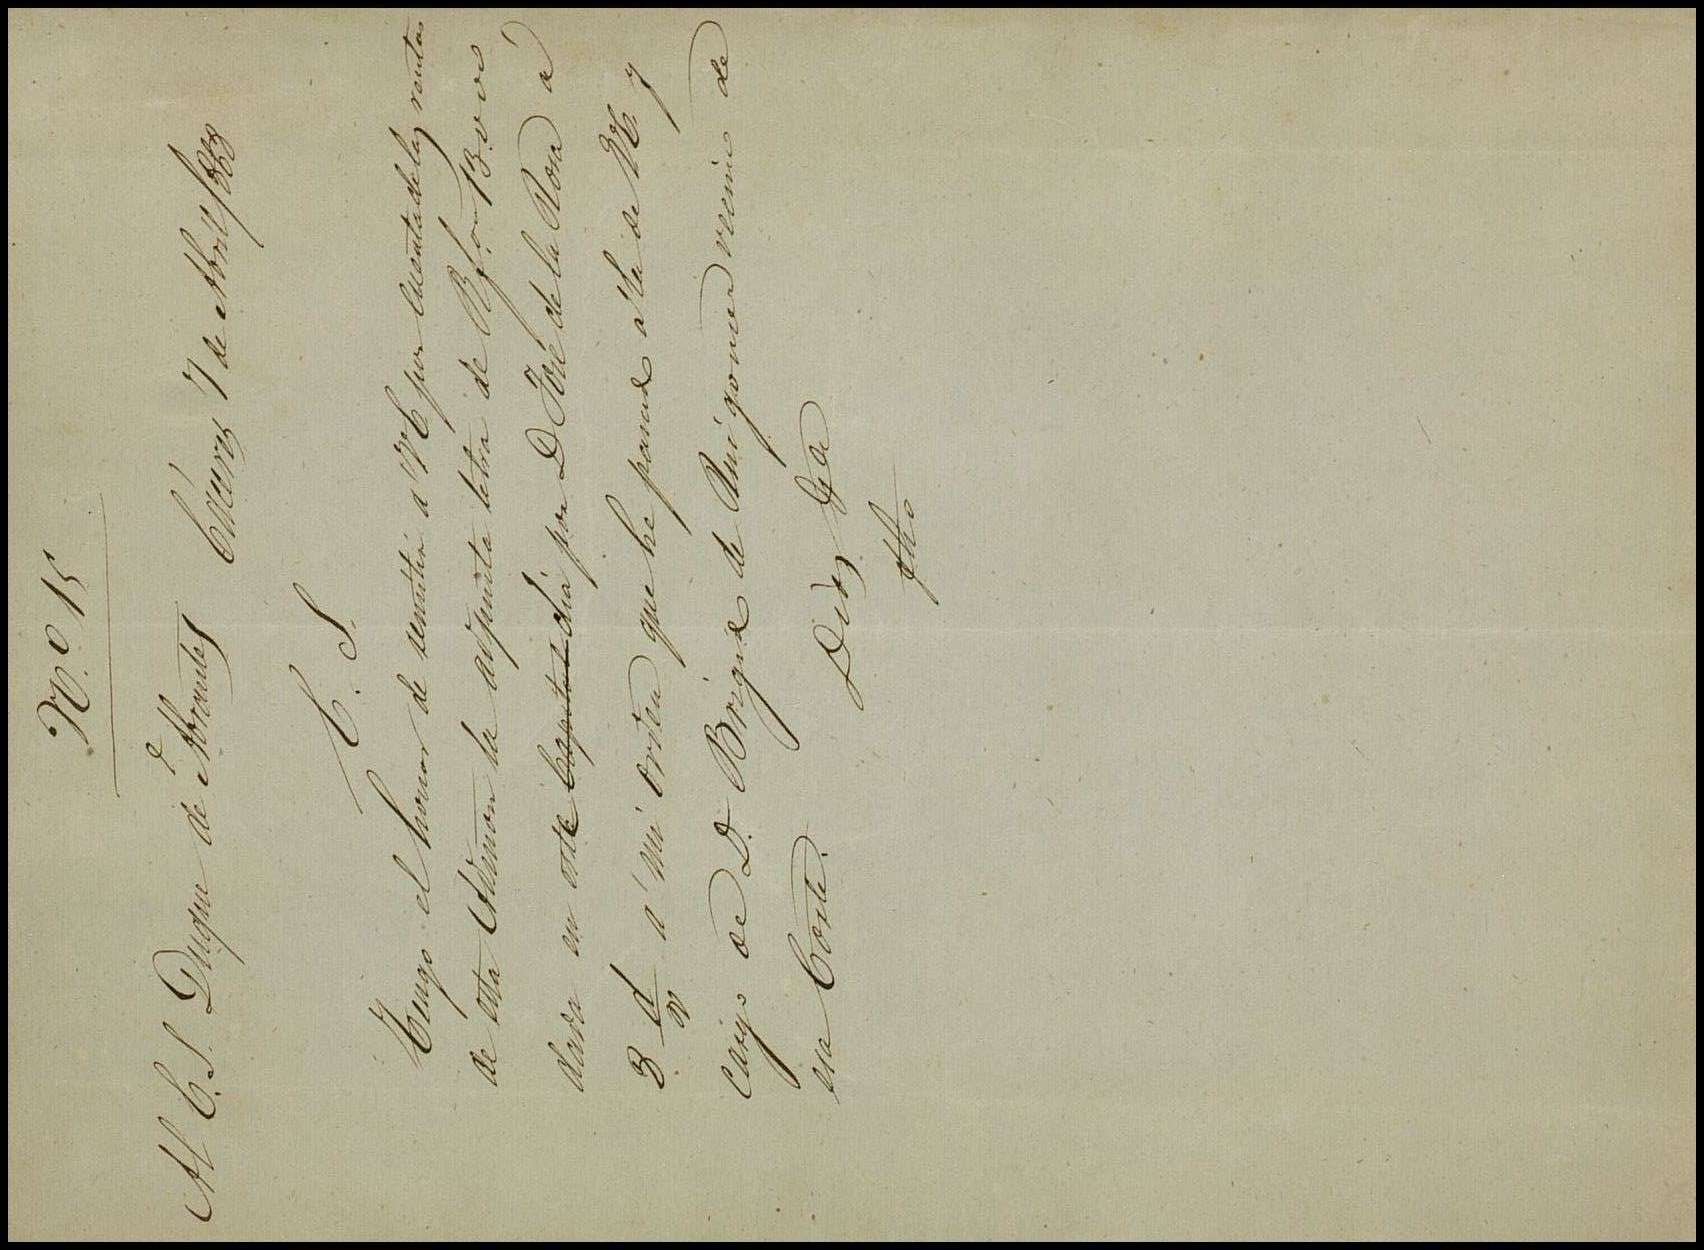 N.º 15
Al E. S. Duque de Abrantes Cáceres 7 de Abril 1858
E. S.
Tengo el honor de remitir á VE por cuenta de las rentas
de esta Admon la adjunta letra de R.s v.on 13.000
dada en este capital dia por D José de la Rosa á
8 d/v á mi orden que he pasado á la de VE y
cargo de D. Brigido de Ruigomez vecino de
esa Corte.
Dios Gde
fho